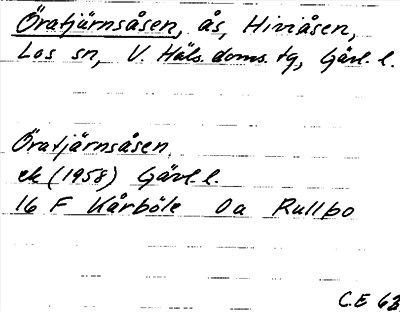 Öratjärnsåsen, ås, Hiviåsen,
Los sn, V. Häls. doms. tg, Gävl. l.
Öratjärnsåsen
ek (1958) Gävl. l.
16 F Kårböle 0a Rullbo
C.E 62